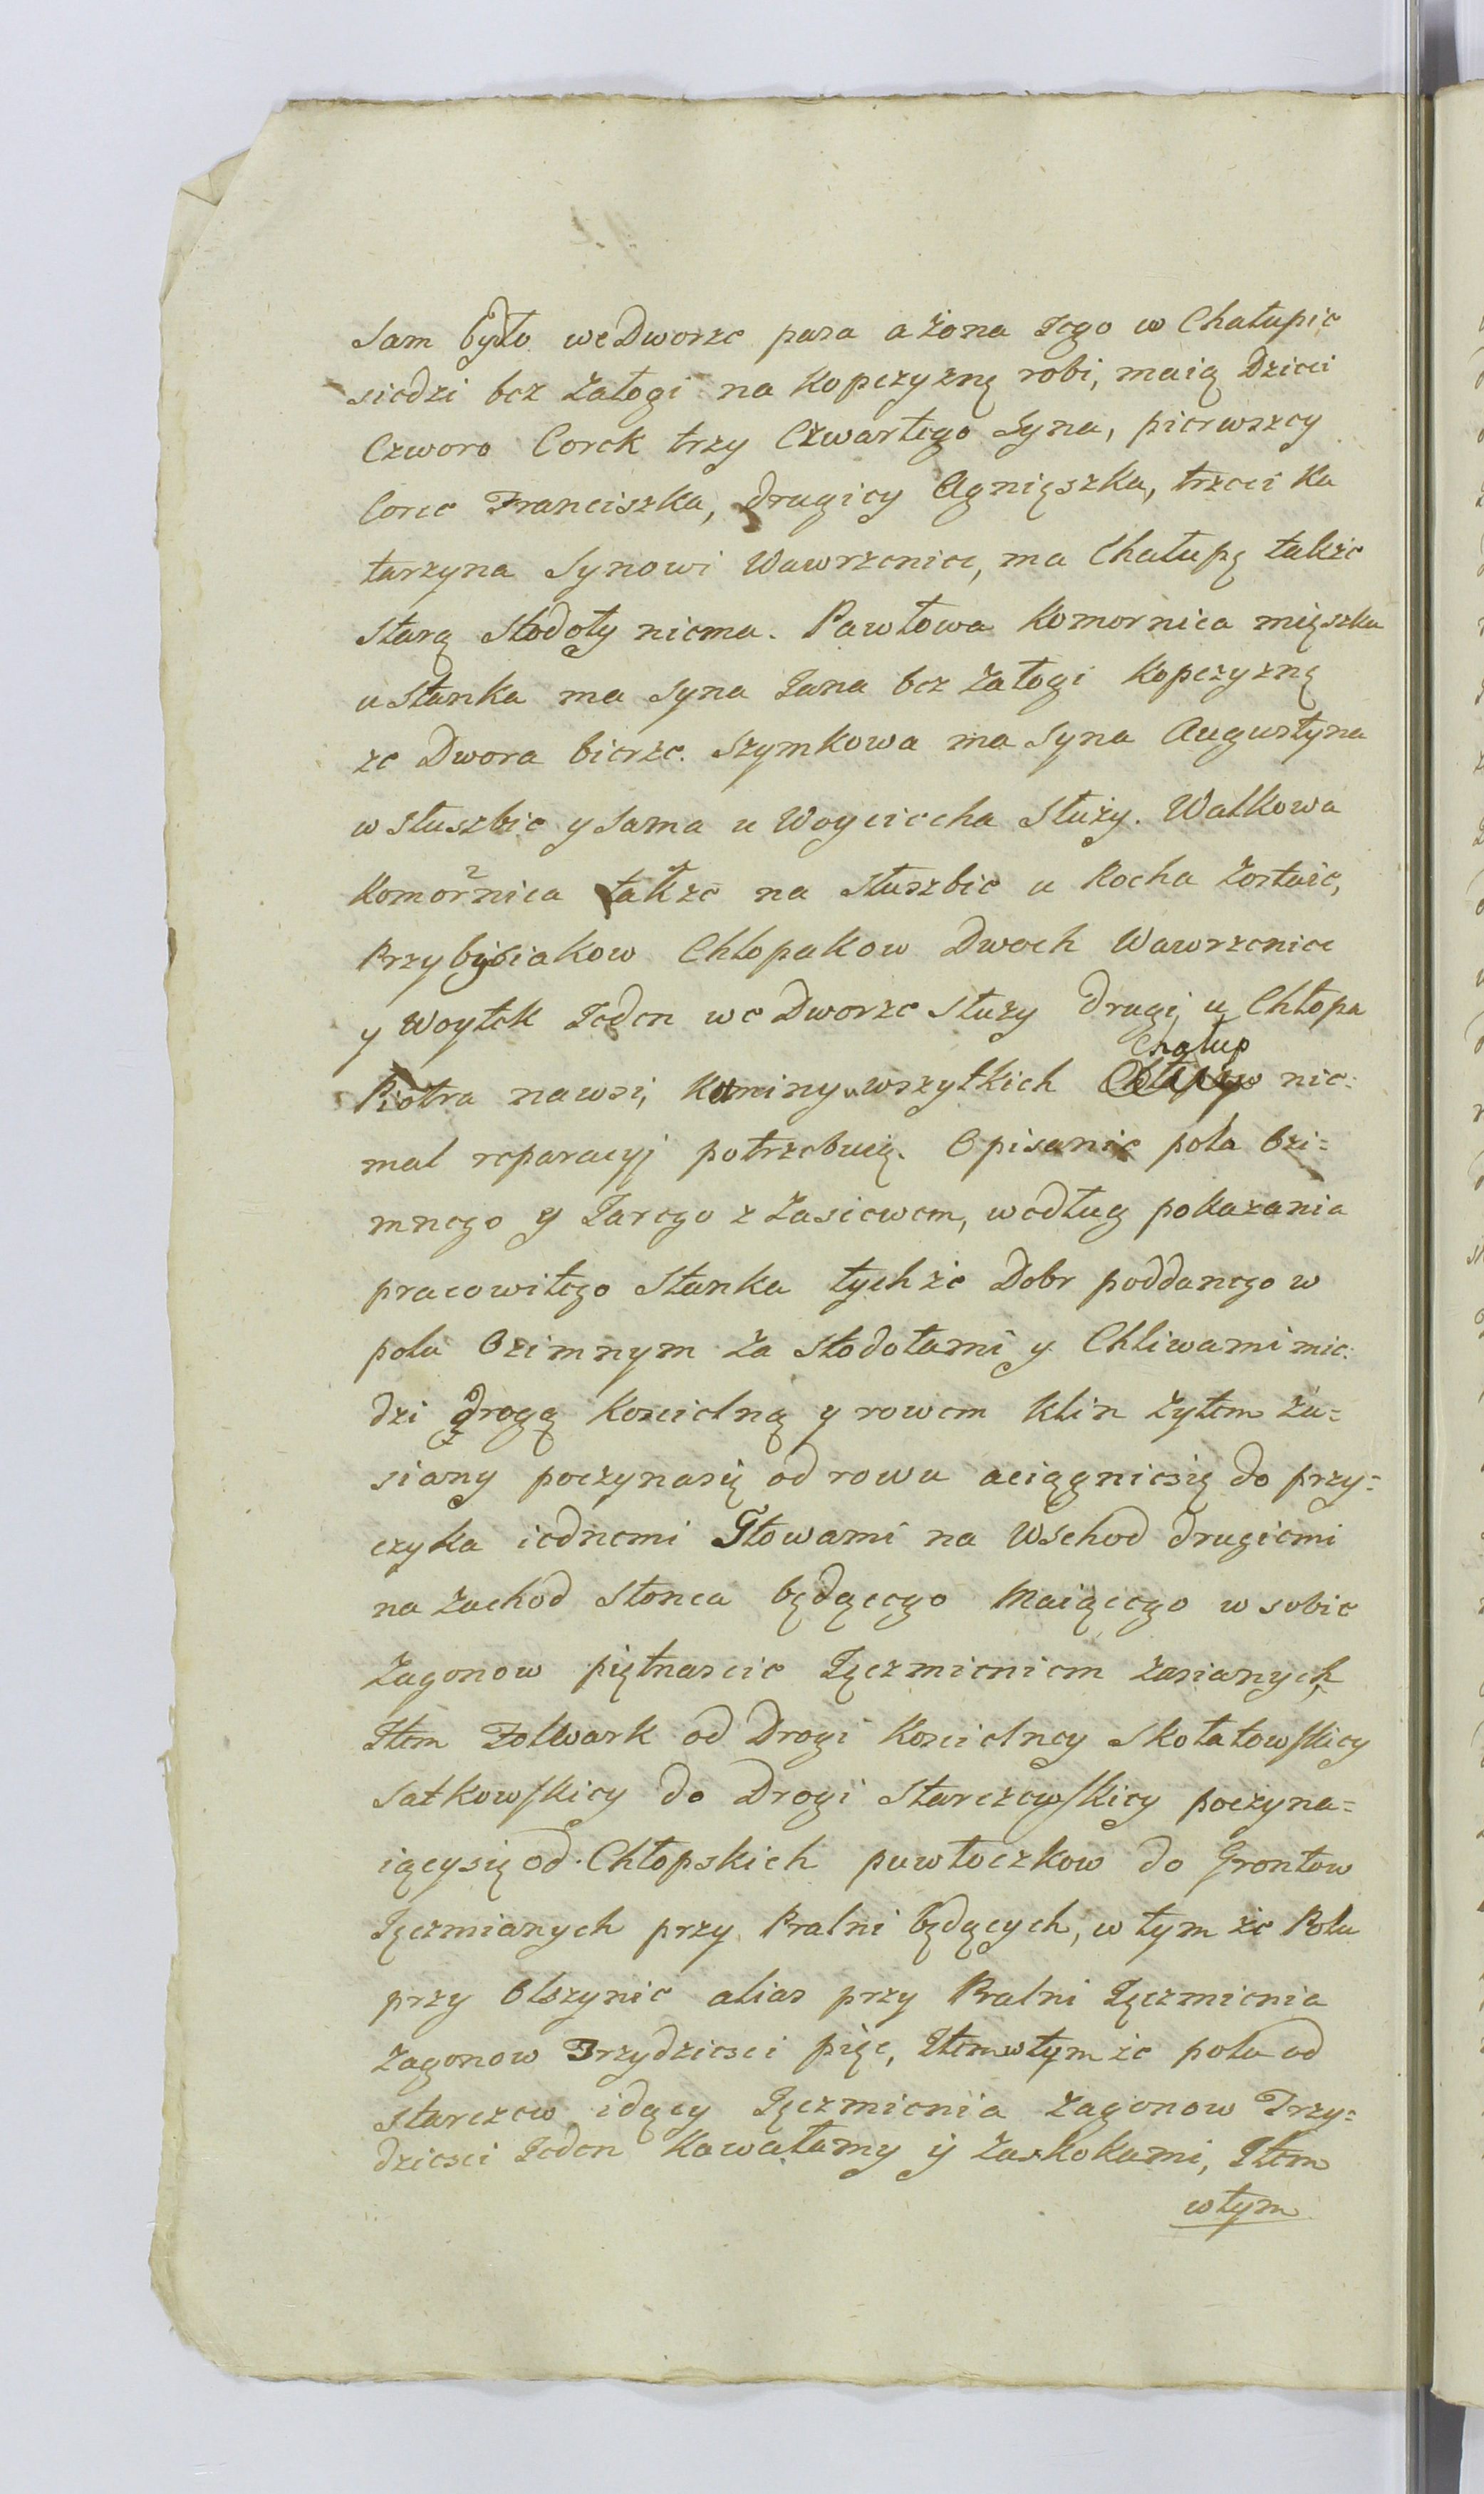 Sam bydło we Dworze pasa a żona Jego w Chałupie
siedzi bez Załogi na Kopczyznę robi, maią Dzieci
Czworo Corek trzy Czwartego Syna, pierwszey
Corce Franciszka, drugiey Agnięszka, trzeci Ka
tarzyna Synowi Wawrzeniec, ma Chałupę także
starą Stodoły niema. Pawłowa Komornica mięszka
u Stanka ma Syna Jana bez Załogi Kopczyznę
ze Dwora bierze. Szymkowa ma Syna Augustyna
w słuszbie y Sama u Woyciecha Służy. Walkowa
Komornica także na Słuszbie u Rocha Zostaie,
Przybysiakow Chłopakow Dwoch Wawrzeniec
y Woytek Jeden we Dworze Służy drugi u Chłopa
Chałup
Piotra na wsi, Kominy u wszytkich nie:
mal reparacyj potrzebuią. Opisanie pola Ozi=
mnego y Jarego z Zasiewem, według pokazania
pracowitego Stanka tychże Dobr poddanego w
polu Ozimnym Za Stodołami y Chliwami mie:
dzi drogą Koscielną y rowem Klin Żytem Za=
siany poczynasię od rowu aciągniesię do przy=
czyka iednemi Głowami na Wschod drugiemi
na Zachod Słonca będącego Maiącego w sobie
Zagonow piętnascie Jęczmieniem Zasianych,
Item Folwark od Drogi Koscielney Skotatowskiey
Satkowskiey do Drogi Starczewskiey poczyna=
iącysię od Chłopskich puwłoczkow do Grontow
Jęczmianych przy Pralni będących, w tym że Polu
przy Olszynie alias przy Pralni Jęczmienia
Zagonow Trzydziesci pięc, Item w tym że polu od
Starczew idący Jęczmienia Zagonow Trzy=
dziesci Jeden Kawałamy y Zaskokami, Item
w tym